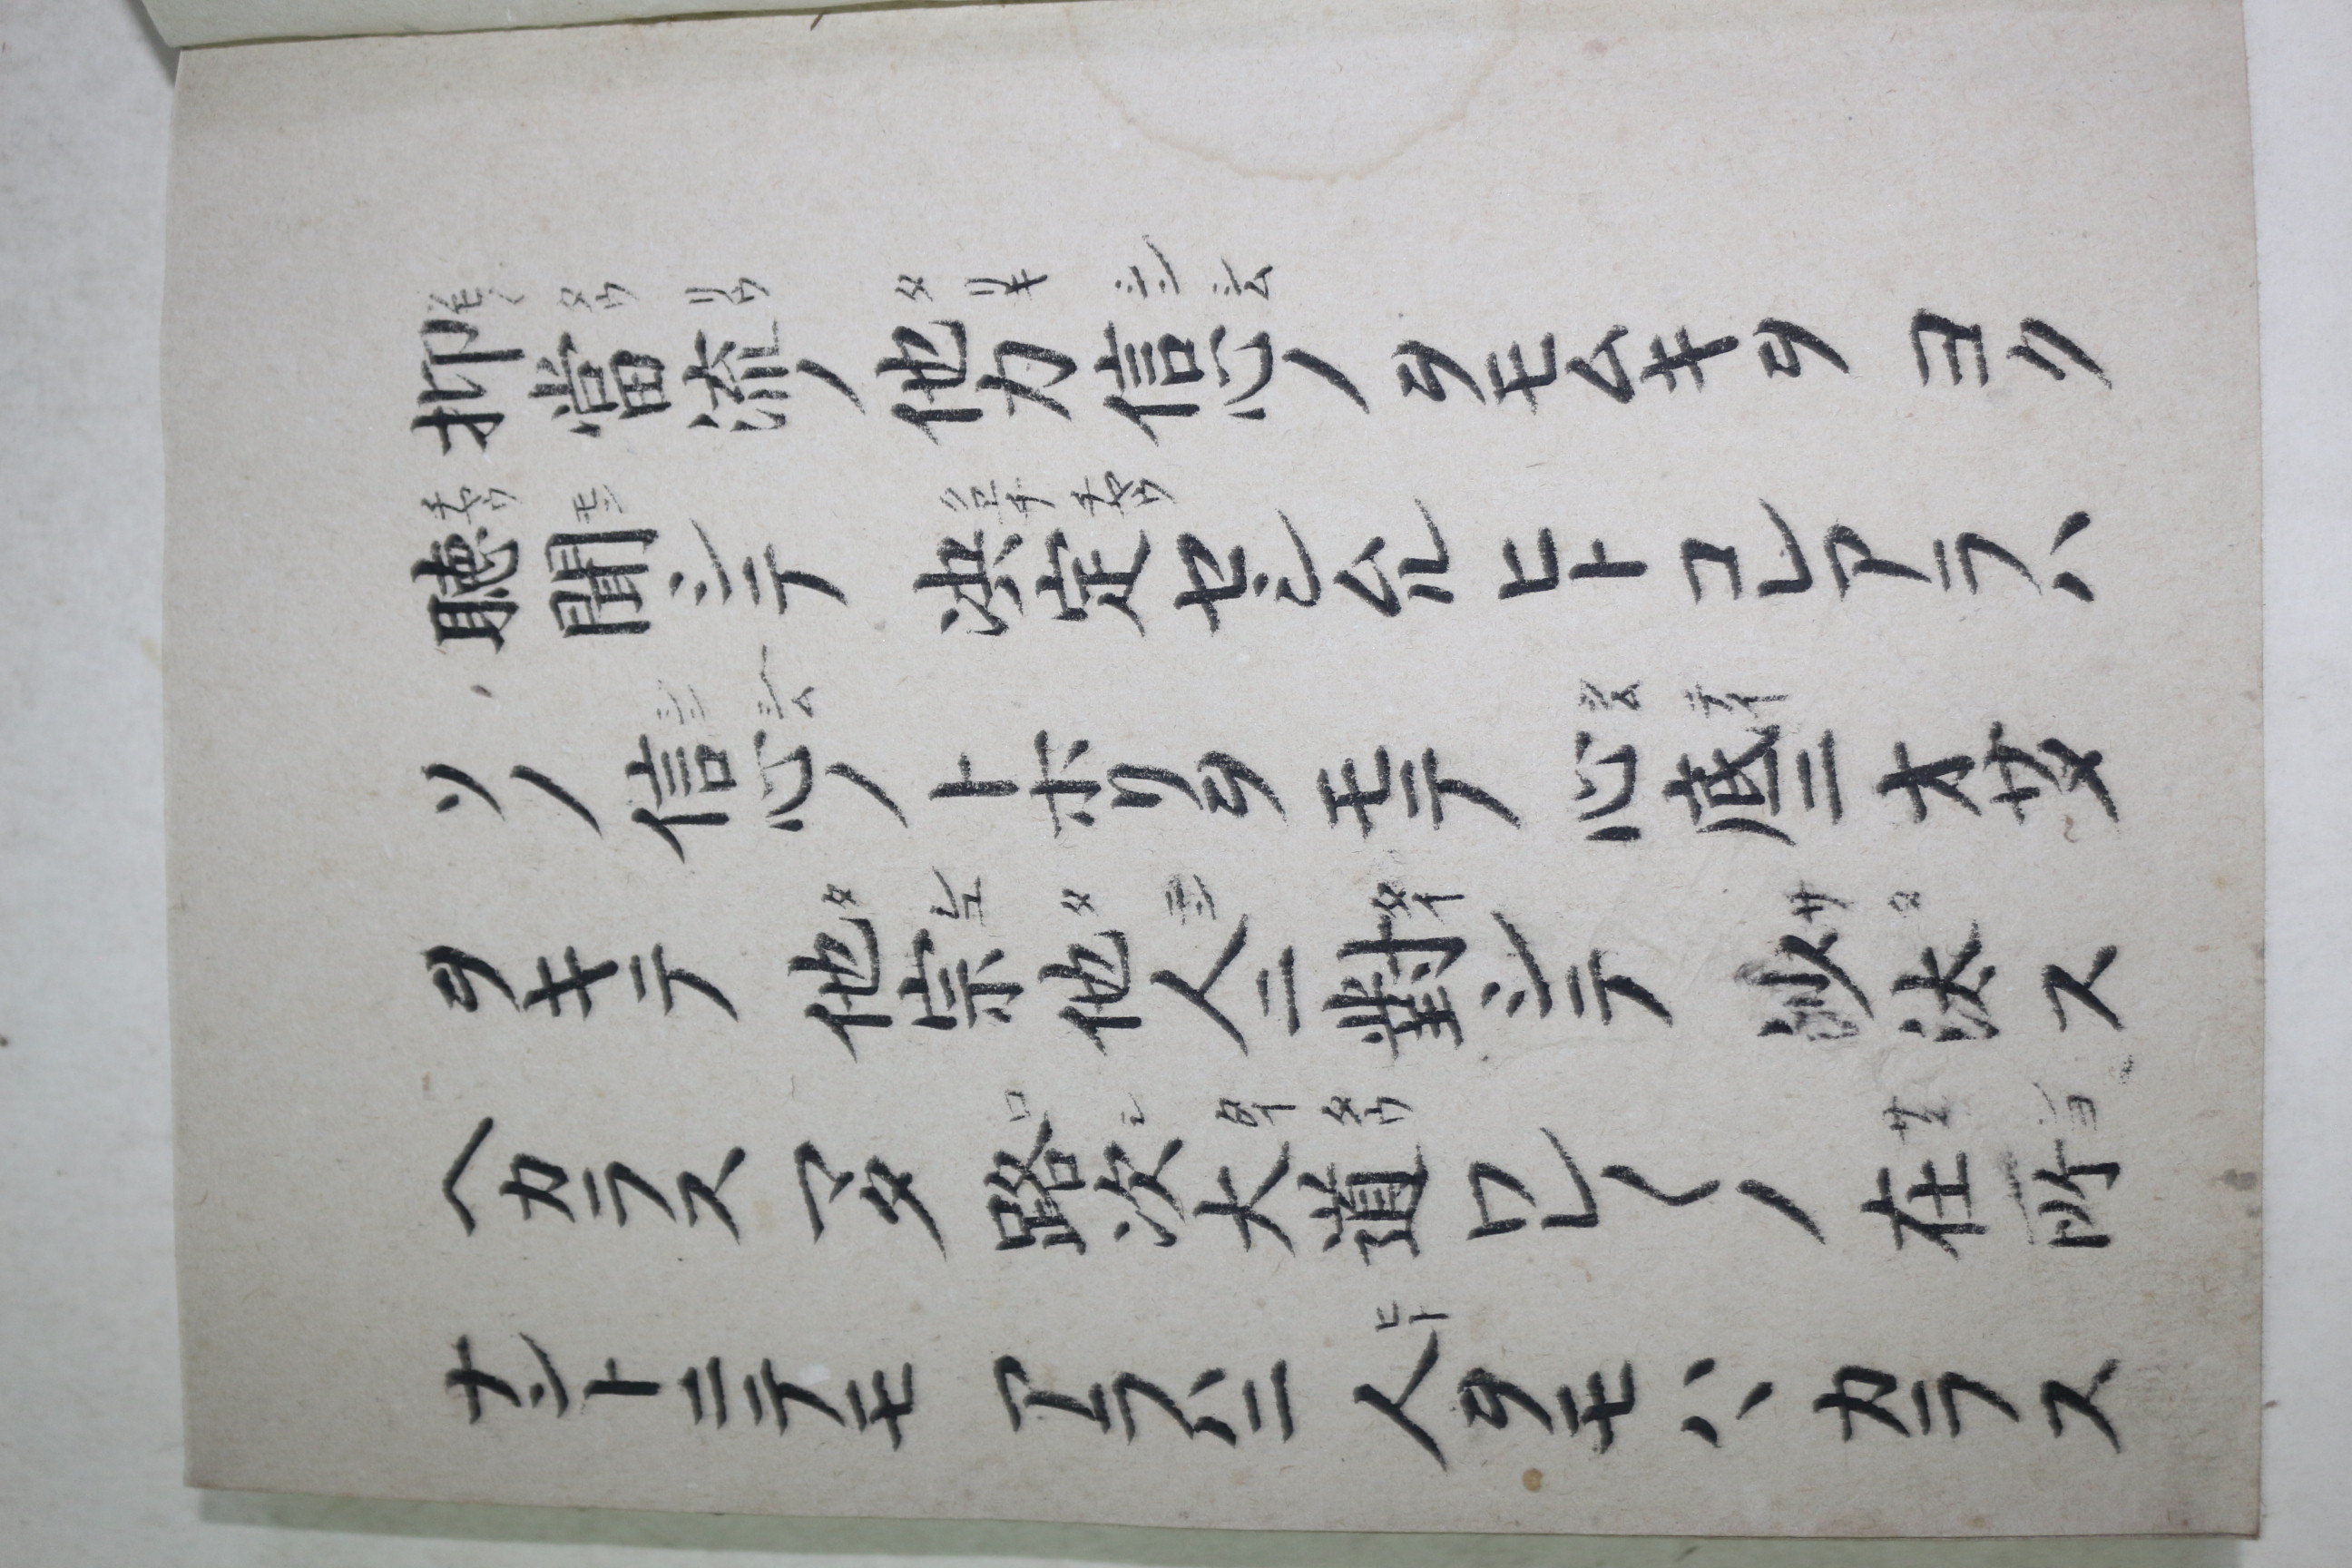 抑當流ノ他力信心ノヲモムキヲ ヨク
聴聞シテ 决定セシムルヒトコレアラハ
ソノ信心ノトホリヲモテ 心底ニオサメ
ヲキテ 他宗他人ニ對シテ 沙汰ス
ヘカラス マタ 路次大道ワレ〱ノ 在所
ナントニテモ アラハニ 人ヲモハヽカラス